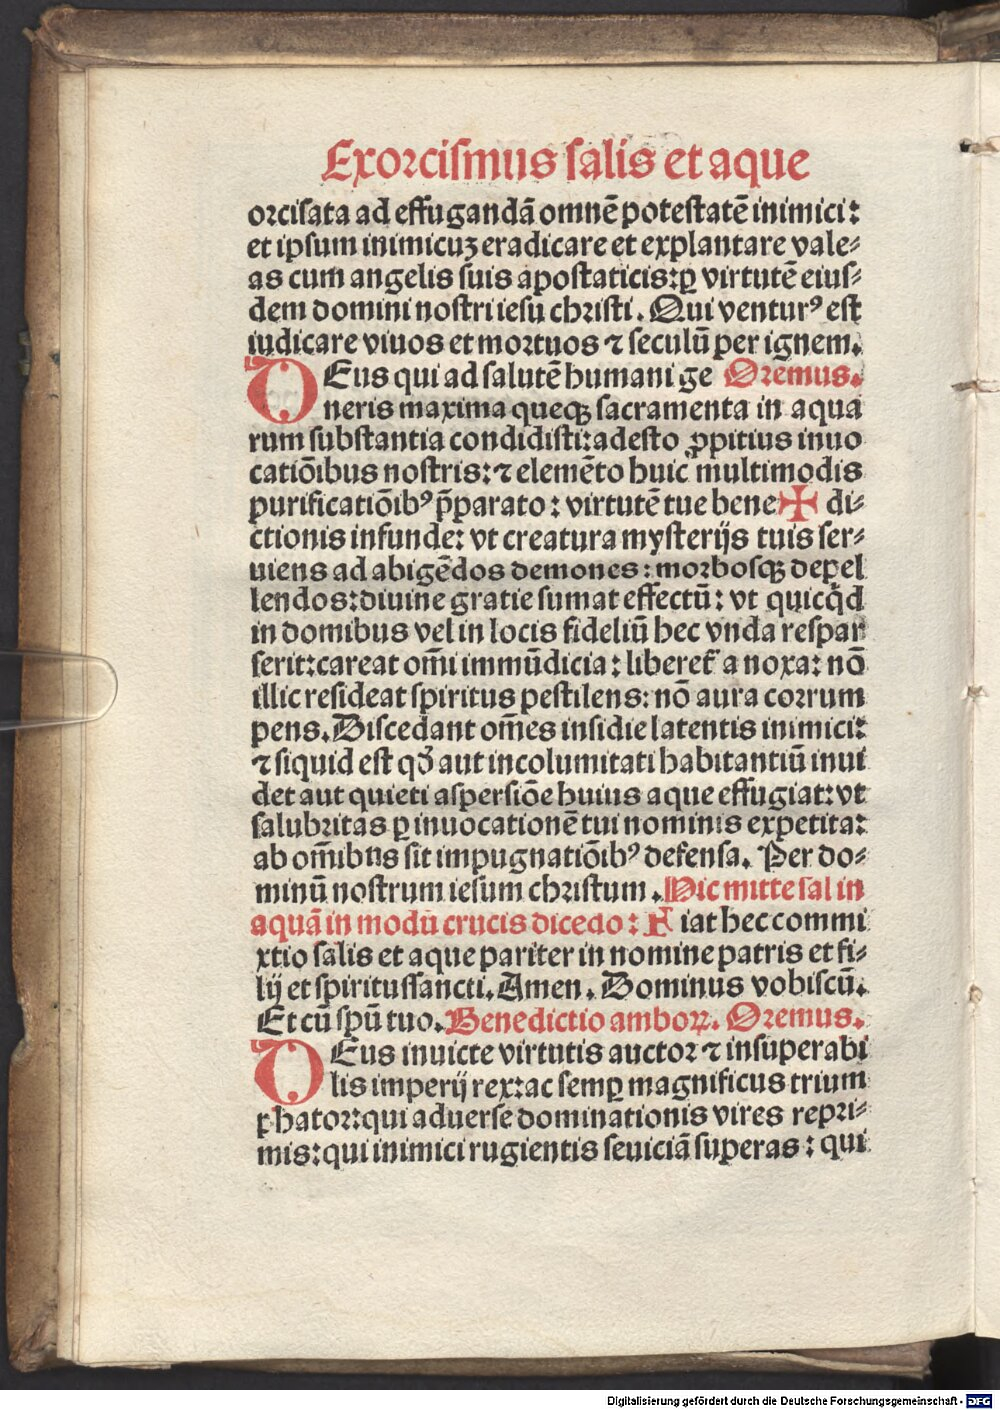 Exorcismus salis et aque
orcisata ad effugandā omnē potestatē inimici:
et ipsum inimicuꝫ eradicare et explantare vale⸗
as cum angelis suis apostaticis: ꝑ virtutē eius⸗
dem domini nostri iesu christi. Qui venturꝰ est
iudicare viuos et mortuos ⁊ seculū per ignem.
DEus qui ad salutē humani ge Oremus.
neris maxima queqꝫ sacramenta in aqua
rum substantia condidisti: adesto ꝓpitius inuo
catiōibus nostris: ⁊ elemēto huic multimodis
purificatiōibꝰ p̄parato: virtutē tue bene ✠ di⸗
ctionis infunde: vt creatura mysterijs tuis ser⸗
uiens ad abigēdos demones: morbosqꝫ depel
lendos: diuine gratie sumat effectū: vt quicq̇d
in domibus vel in locis fideliū hec vnda respar
serit: careat om̄i immūdicia: liberet᷑ a noxa: nō
illic resideat spiritus pestilens: nō aura corrum
pens. Discedant om̄es insidie latentis inimici:
⁊ siquid est qđ aut incolumitati habitantiū inui
det aut quieti aspersiōe huius aque effugiat: vt
salubritas ꝑ inuocationē tui nominis expetita:
ab om̄ibus sit impugnatiōibꝰ defensa. Per do⸗
minū nostrum iesum christum. Hic mitte sal in
aquā in modū crucis dicēdo: Fiat hec commi
xtio salis et aque pariter in nomine patris et fi⸗
lij et spiritussancti. Amen. Dominus vobiscū.
Et cū spū tuo. Benedictio amboꝝ. Oremus.
DEus inuicte virtutis auctor ⁊ insuperabi
lis imperij rex: ac semꝑ magnificus trium
phator: qui aduerse dominationis vires repri⸗
mis: qui inimici rugientis seuiciā superas: qui
Digitalisierung gefördert durch die Deutsche Forschungsgemeinschaft - DFG